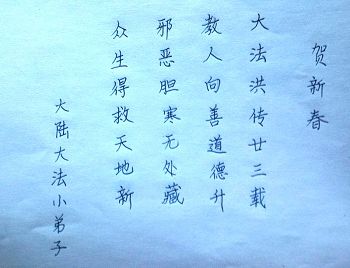 贺新春
大法洪传廿三载
教人向善道德升
邪恶胆寒无处藏
众生得救天地新
大陆大法小弟子